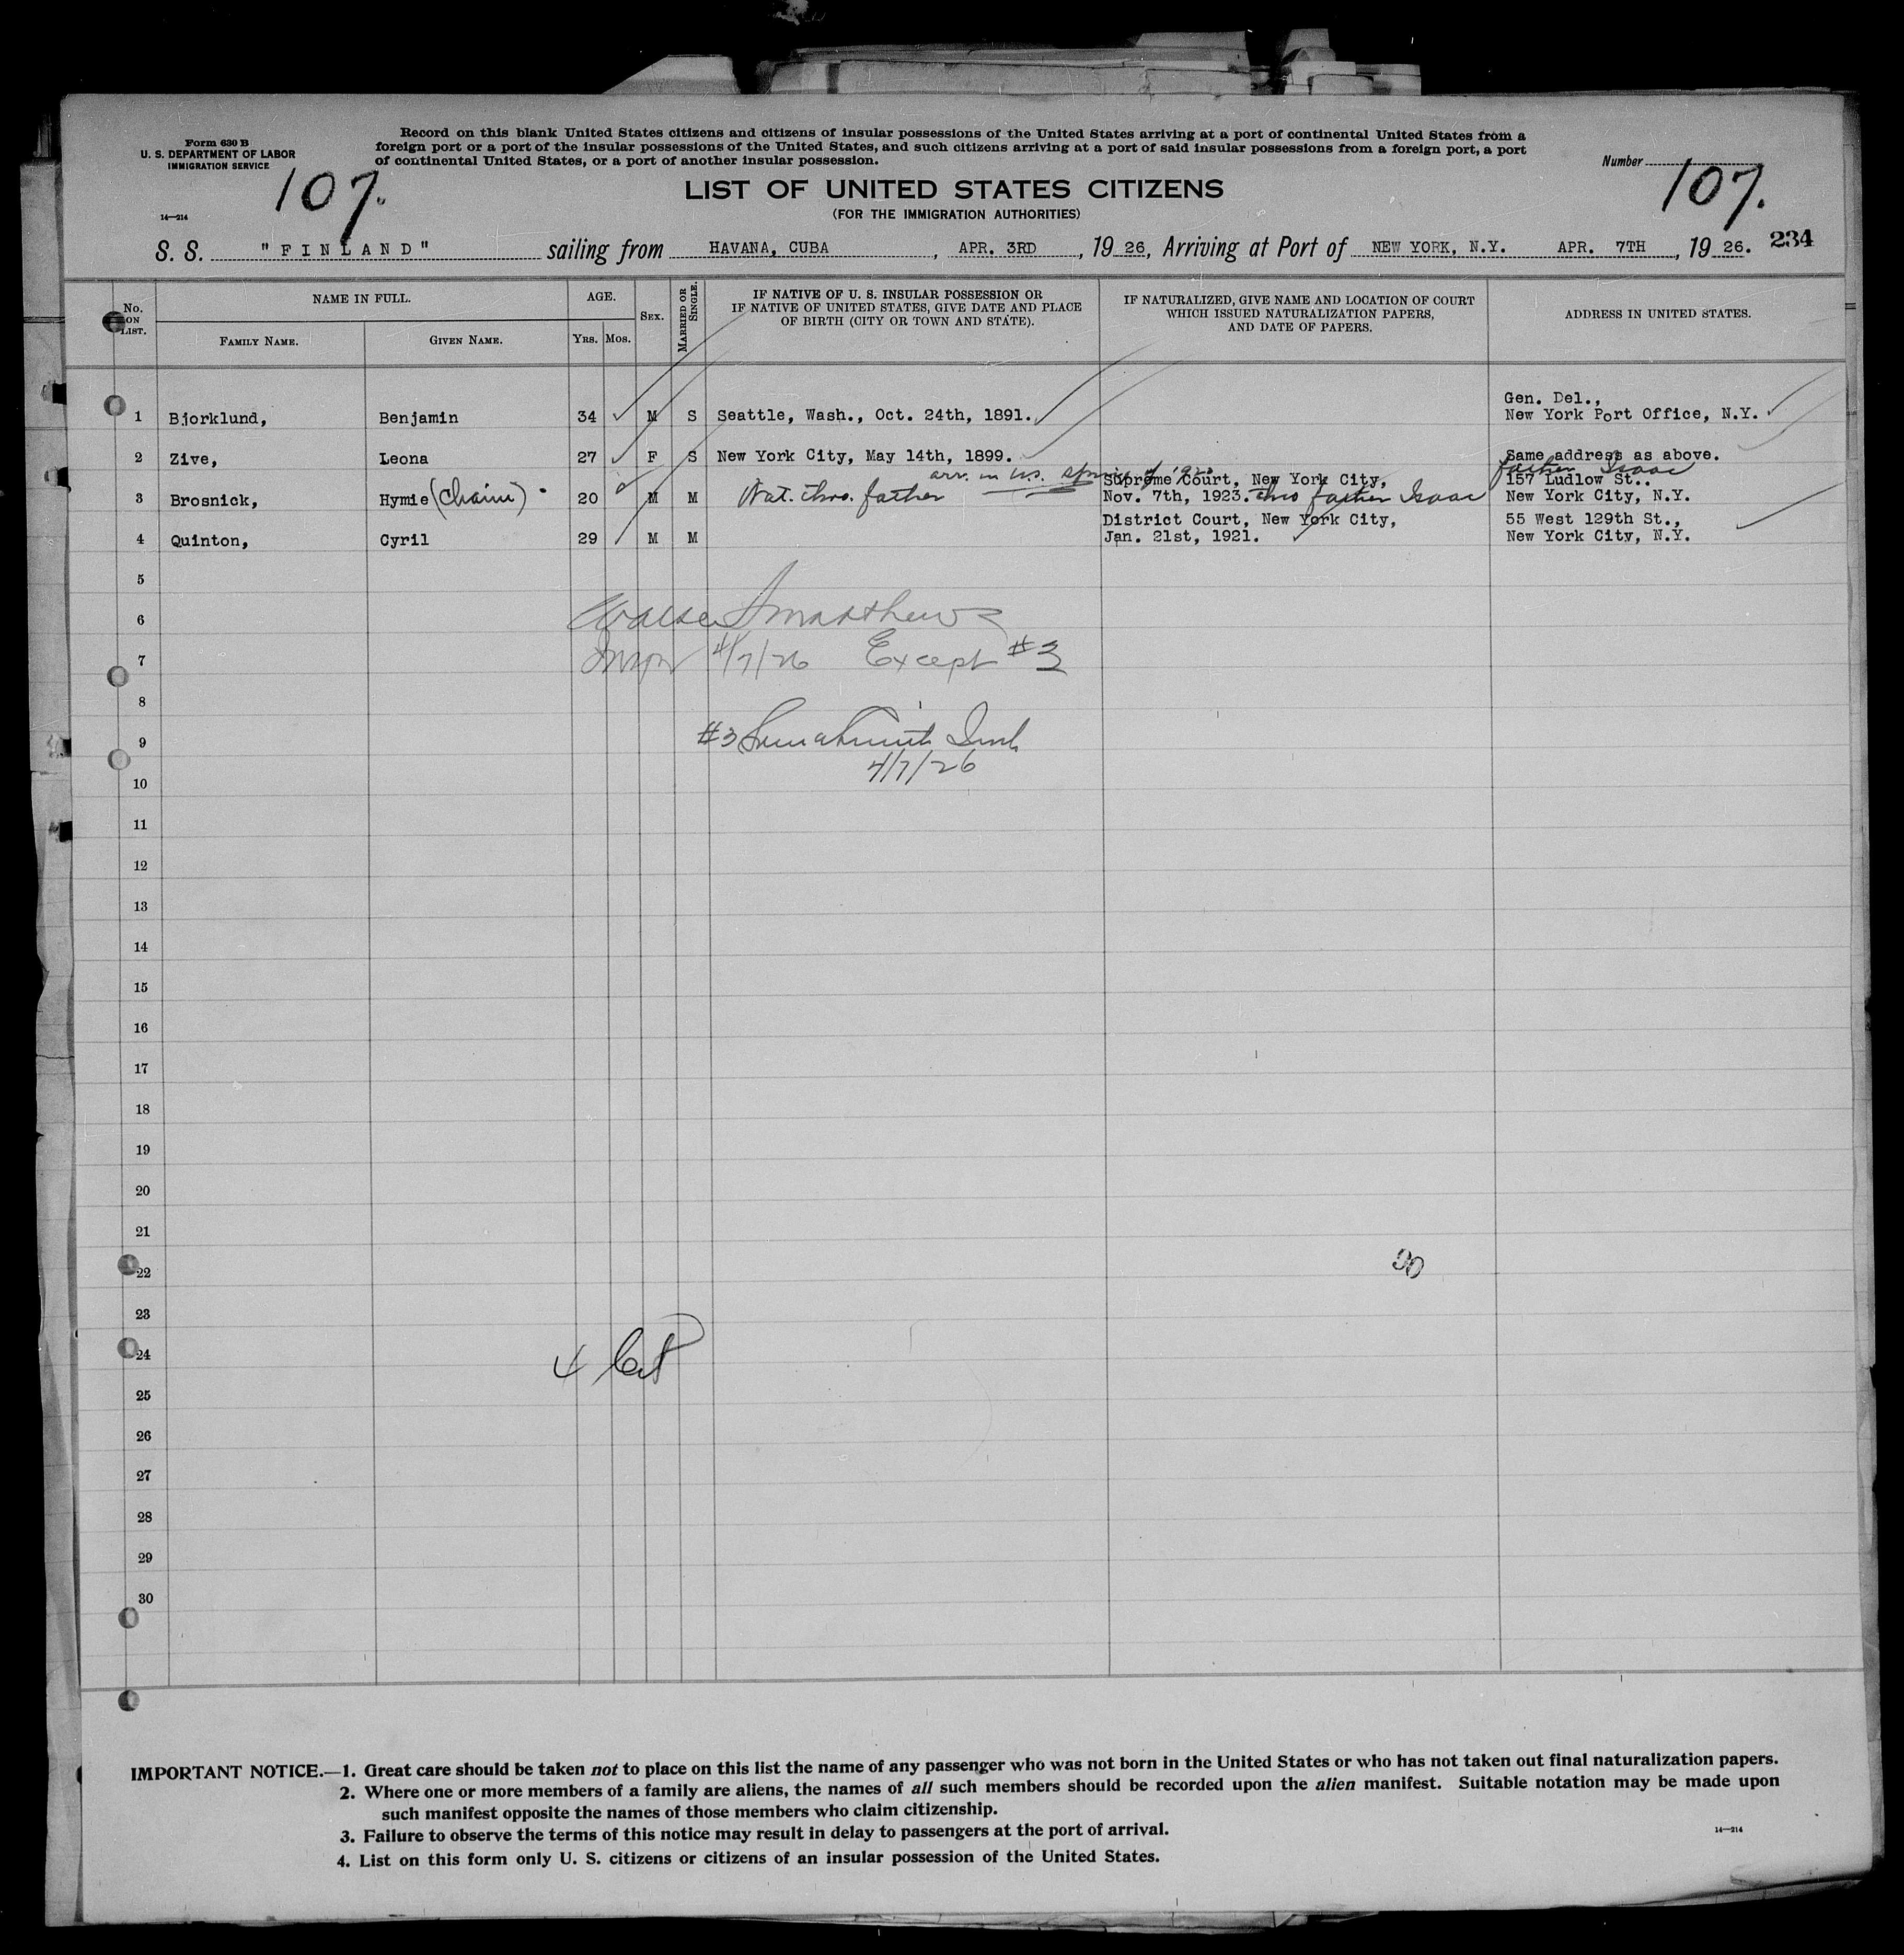 Form 630 B
U. S. DEPARTMENT OF LABOR
IMMIGRATION SERVICE
14—214
Record on this blank United States citizens and citizens of insular possessions of the United States arriving at a port of continental United States from a
foreign port or a port of the insular possessions of the United States, and such citizens arriving at a port of said insular possessions from a foreign port, a port
of continental United States, or a port of another insular possession.
Number
107.
107.
LIST OF UNITED STATES CITIZENS
(FOR THE IMMIGRATION AUTHORITIES)
S. S. "FINLAND" sailing from HAVANA, CUBA, APR. 3RD, 1926, Arriving at Port of NEW YORK, N.Y. APR. 7TH, 1926. 234
No. ON LIST.
NAME IN FULL.
FAMILY NAME.
GIVEN NAME.
AGE.
YRS.
MOS.
SEX.
MARRIED OR SINGLE.
IF NATIVE OF U. S. INSULAR POSSESSION OR
IF NATIVE OF UNITED STATES, GIVE DATE AND PLACE
OF BIRTH (CITY OR TOWN AND STATE).
IF NATURALIZED, GIVE NAME AND LOCATION OF COURT
WHICH ISSUED NATURALIZATION PAPERS,
AND DATE OF PAPERS.
ADDRESS IN UNITED STATES.
Gen. Del.,
1 Bjorklund, Benjamin 34 M S Seattle, Wash., Oct. 24th, 1891. New York Port Office, N.Y.
2 Zive, Leona 27 F S New York City, May 14th, 1899. Same address as above.
arr. in U.S. spring of 1920 father Isaac
Supreme Court, New York City, 157 Ludlow St..
3 Brosnick, Hymie (Chaim) 20 M M Nat. thro. father Nov. 7th, 1923. thro father Isaac New York City, N.Y.
District Court, New York City, 55 West 129th St.,
4 Quinton, Cyril 29 M M Jan. 21st, 1921. New York City, N.Y.
5
6 Matthews
7 4/7/26 Except #3
8
9 #3
4/7/26
10
11
12
13
14
15
16
17
18
19
20
21
22 90
23
24 4
25
26
27
28
29
30
IMPORTANT NOTICE.—1. Great care should be taken not to place on this list the name of any passenger who was not born in the United States or who has not taken out final naturalization papers.
2. Where one or more members of a family are aliens, the names of all such members should be recorded upon the alien manifest. Suitable notation may be made upon
such manifest opposite the names of those members who claim citizenship.
3. Failure to observe the terms of this notice may result in delay to passengers at the port of arrival.
14—214
4. List on this form only U. S. citizens or citizens of an insular possession of the United States.